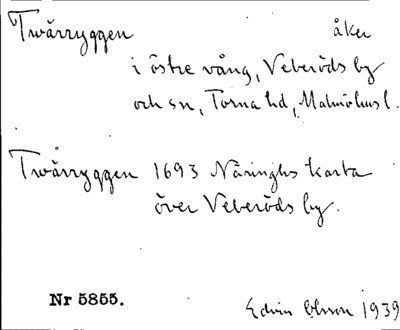 Twärryggen åker
i östre vång, Veberöds by
och sn, Torna hd, Malmöhus l.
Twärryggen 1693 Näringhs karta
över Veberöds by.
Nr 5855.
Edvin Ohlsson 1939